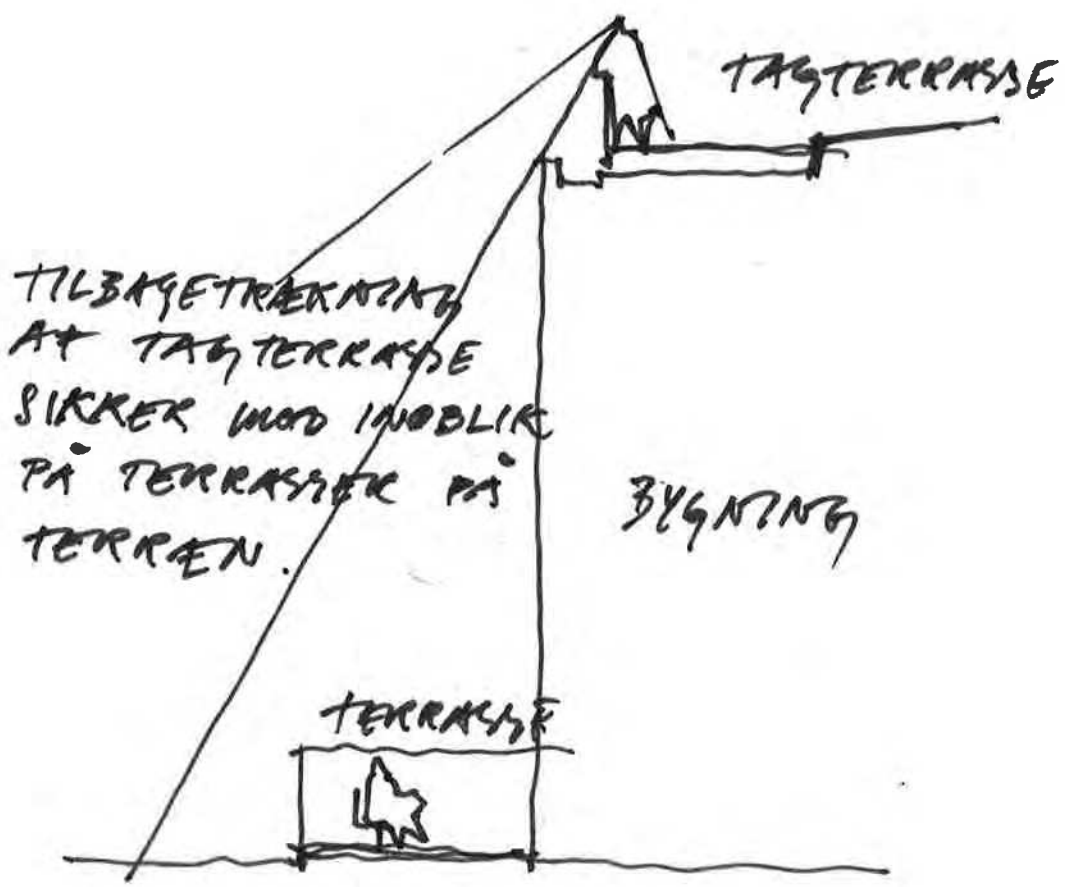 TAGTERRASSE
TILBAGETRÆKNING
AF TAGTERRASSE
SIKRER MOD INDBLIK
PÅ TERRASSER PÅ
TERRÆN.
BYGNING
TERRASSE